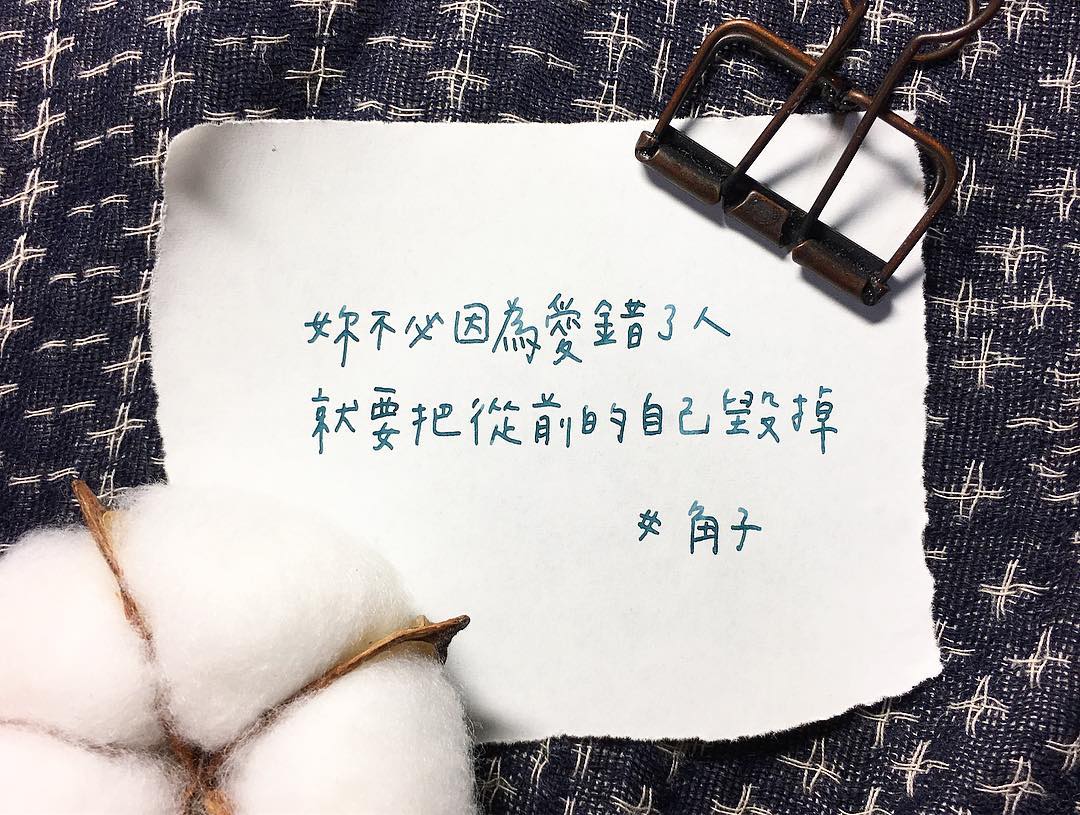 妳不必因為愛錯了人
就要把從前的自己毀掉
# 角子